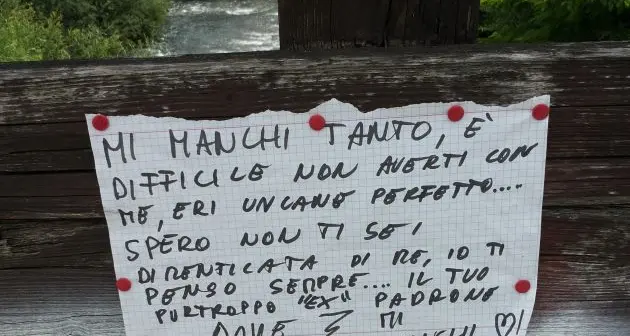 MI MANCHI TANTO, È
DIFFICILE NON AVERTI CON
ME, ERI UN CANE PERFETTO....
SPERO NON TI SEI
DIMENTICATA DI ME, IO TI
PENSO SEMPRE.... IL TUO
PURTROPPO "EX" PADRONE
MI